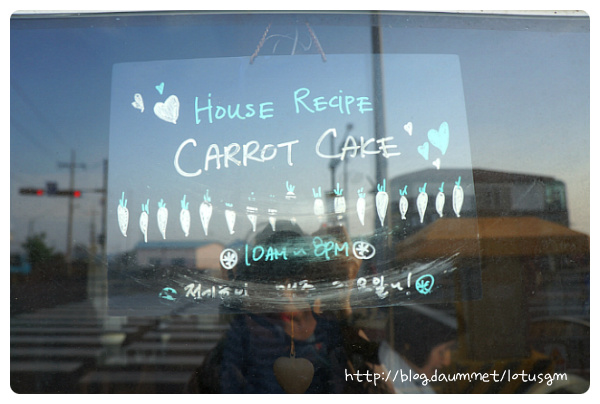 HOUSE RECIPE
CARROT CAKE
10AM ~ 8PM
http://blog.daum.net/lotusgm